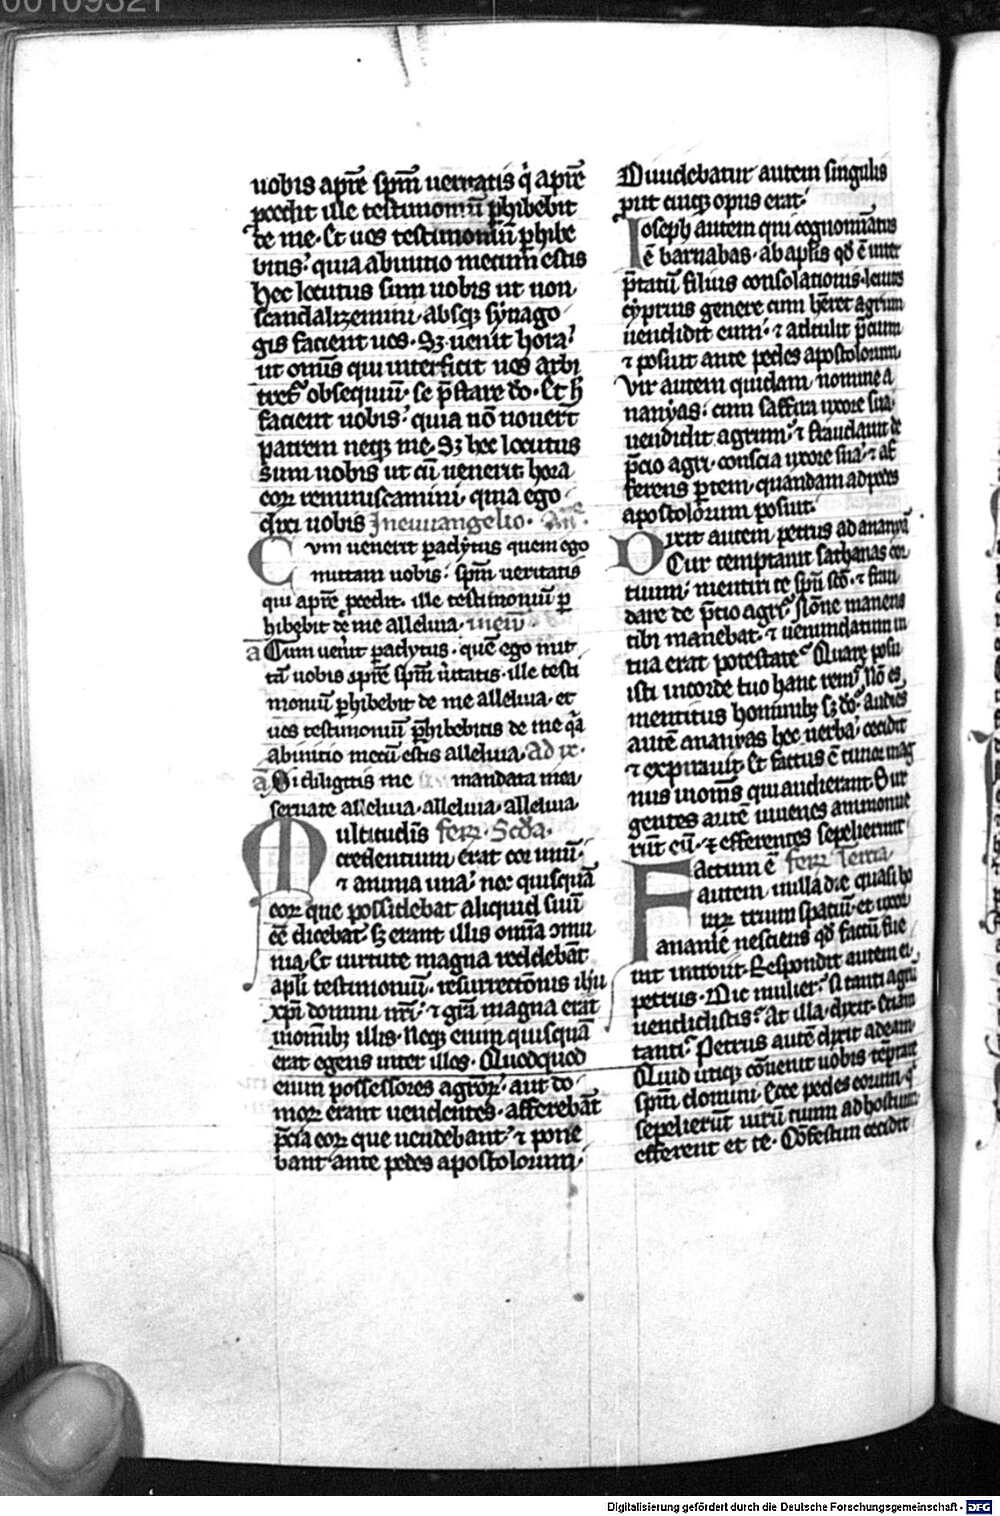 00109321
uobis apr̄e sp̄m ueritatis q̇ apr̄e
p̱cedit ille testimoniū p̱hibebit
de me. Et uos testimoniū p̱hibe
bitis. quia abinitio mecum estis
hec locutus sum uobis ut non
scandalizemini. absq̨ synago
gis facient uos. Sꝫ uenit hora.
ut omīs qui interficit uos arbi
tret᷒ obsequiū. se p̄stare do. Et h̄
facient uobis. quia nō nouerūt
patrem neqꝫ me. Sꝫ hec locutus
sum uobis ut cū uenerit hora
eoꝝ reminiscamini. quia ego
dixi uobis Jn euuangelio. An̄.
Cum uenerit paclytus quem ego
mittam uobis. sp̄m ueritatis
qui apr̄e p̱cedit. ille testimoniū p̱
hibebit de me alleluia.
ā Cum uen̄it paclytus. quē ego mit
tā uobis apr̄e sp̄m ūitatis. ille testi
moniū p̱hibebit de me alleluia. et
uos testimoniū p̱hibebitis de me qā
abinitio mecū estis alleluia.
ā Si diligitis me mandata mea
seruate alleluia. alleluia. alleluia
Multitudīs feria. Scd̄a.
credentium erat cor unū.
⁊ anima una. nec quisquā
eoꝝ que possidebat aliquid suū
eē dicebat. sꝫ erant illis omīa ꝯmu
nia. Et uirtute magna reddebāt
apl̄i testimoniū. resurrectionis ih̄u
xp̄i domini nr̄i. ⁊ gr̄a magna erat
inomībꝫ illis. Neqꝫ enim quisquā
erat egens inter illos. Quodquod
enim possessores agroꝝ. aut do
moꝝ erant uendentes. afferebāt
p̄cia eoꝝ que uendebant. ⁊ pone
bant ante pedes apostolorum.
Diuidebatur autem singulis
put cuiqꝫ opus erat.
Ioseph autem qui cognominatus
ē barnabas. ab apl̄is qd̄ ē inter
p̄tatū filius consolationis. leuites
cyprius genere cum h̄eret agrum
uendidit eum. ⁊ adtulit p̄cium
⁊ posuit ante pedes apostolorum.
Vir autem quidam nomine a
nanyas. cum saffira uxore sua.
uendidit agrum. ⁊ fraudauit de
p̄cio agri. conscia uxore sua. ⁊ af
ferens p̱tem quandam adpedes
apostolorum posuit.
Dixit autem petrus ad ananyā
Cur temptauit sathanas cor
tuum. mentiri te sp̄ui sc̄o. ⁊ frau
dare de p̄cio agri. Nōne manens
tibi manebat. ⁊ uenundatum in
tua erat potestate. Quare posu
isti incorde tuo hanc rem. Nō es
mentitus hominibꝫ sꝫ do. Audiēs
autē ananyas hec uerba. cecidit
⁊ expirauit. Et factus ē timor mag
nus inomīs qui audierant. Sur
gentes autē iuuenes ammouue
rūt eū. ⁊ efferentes sepelierunt
Factum ē feria Tertia.
autem nulla die quasi ho
trium spatiū. et uxor
ananie nesciens qd̄ factū fue
rat introiit. Respondit autem ei
petrus. Dic mulier. si tanti agrū
uendidistis. At illa. dixit. Etiam
tanti. Petrus autē dixit ad eam
Quid utiqꝫ cōuenit uobis tēptare
sp̄m domini. Ecce pedes eorum. q̇
sepelierūt uirū tuum ad hostium
efferent et te. Cōfestim cecidit
Digitalisierung gefördert durch die Deutsche Forschungsgemeinschaft - DFG